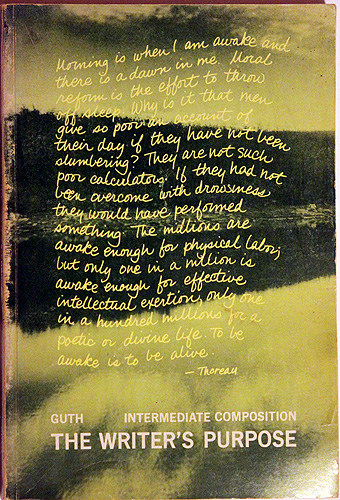 Morning is when I am awake and
there is a dawn in me. Moral
reform is the effort to throw
off sleep. Why is it that men
give so poor an account of
their day if they have not been
slumbering? They are not such
poor calculators. If they had not
been overcome with drowsiness
they would have performed
something. The millions are
awake enough for physical labor;
but only one in a million is
awake enough for effective
intellectual exertion, only one
in a hundred millions for a
poetic or divine life. To be
awake is to be alive.
— Thoreau
GUTH INTERMEDIATE COMPOSITION
THE WRITER'S PURPOSE